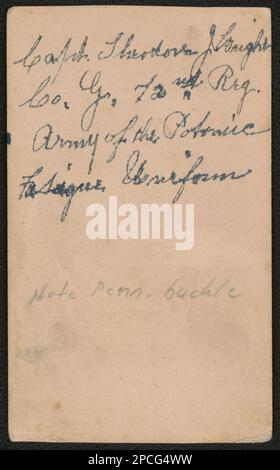 Capt. Theodore J. Fright
Co. G. 72nd Reg.
Army of the Potomic
Fatigue Uniform
alamy
Note Penn. buckle
alamy
Image ID: 2PCG4WW
www.alamy.com